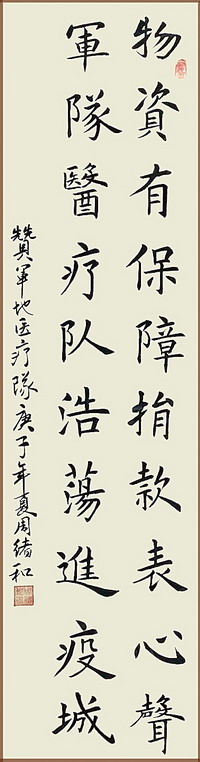 物資有保障捐款表心聲
軍隊醫疗队浩蕩進疫城
贊軍地医疗隊庚子年夏周緒和